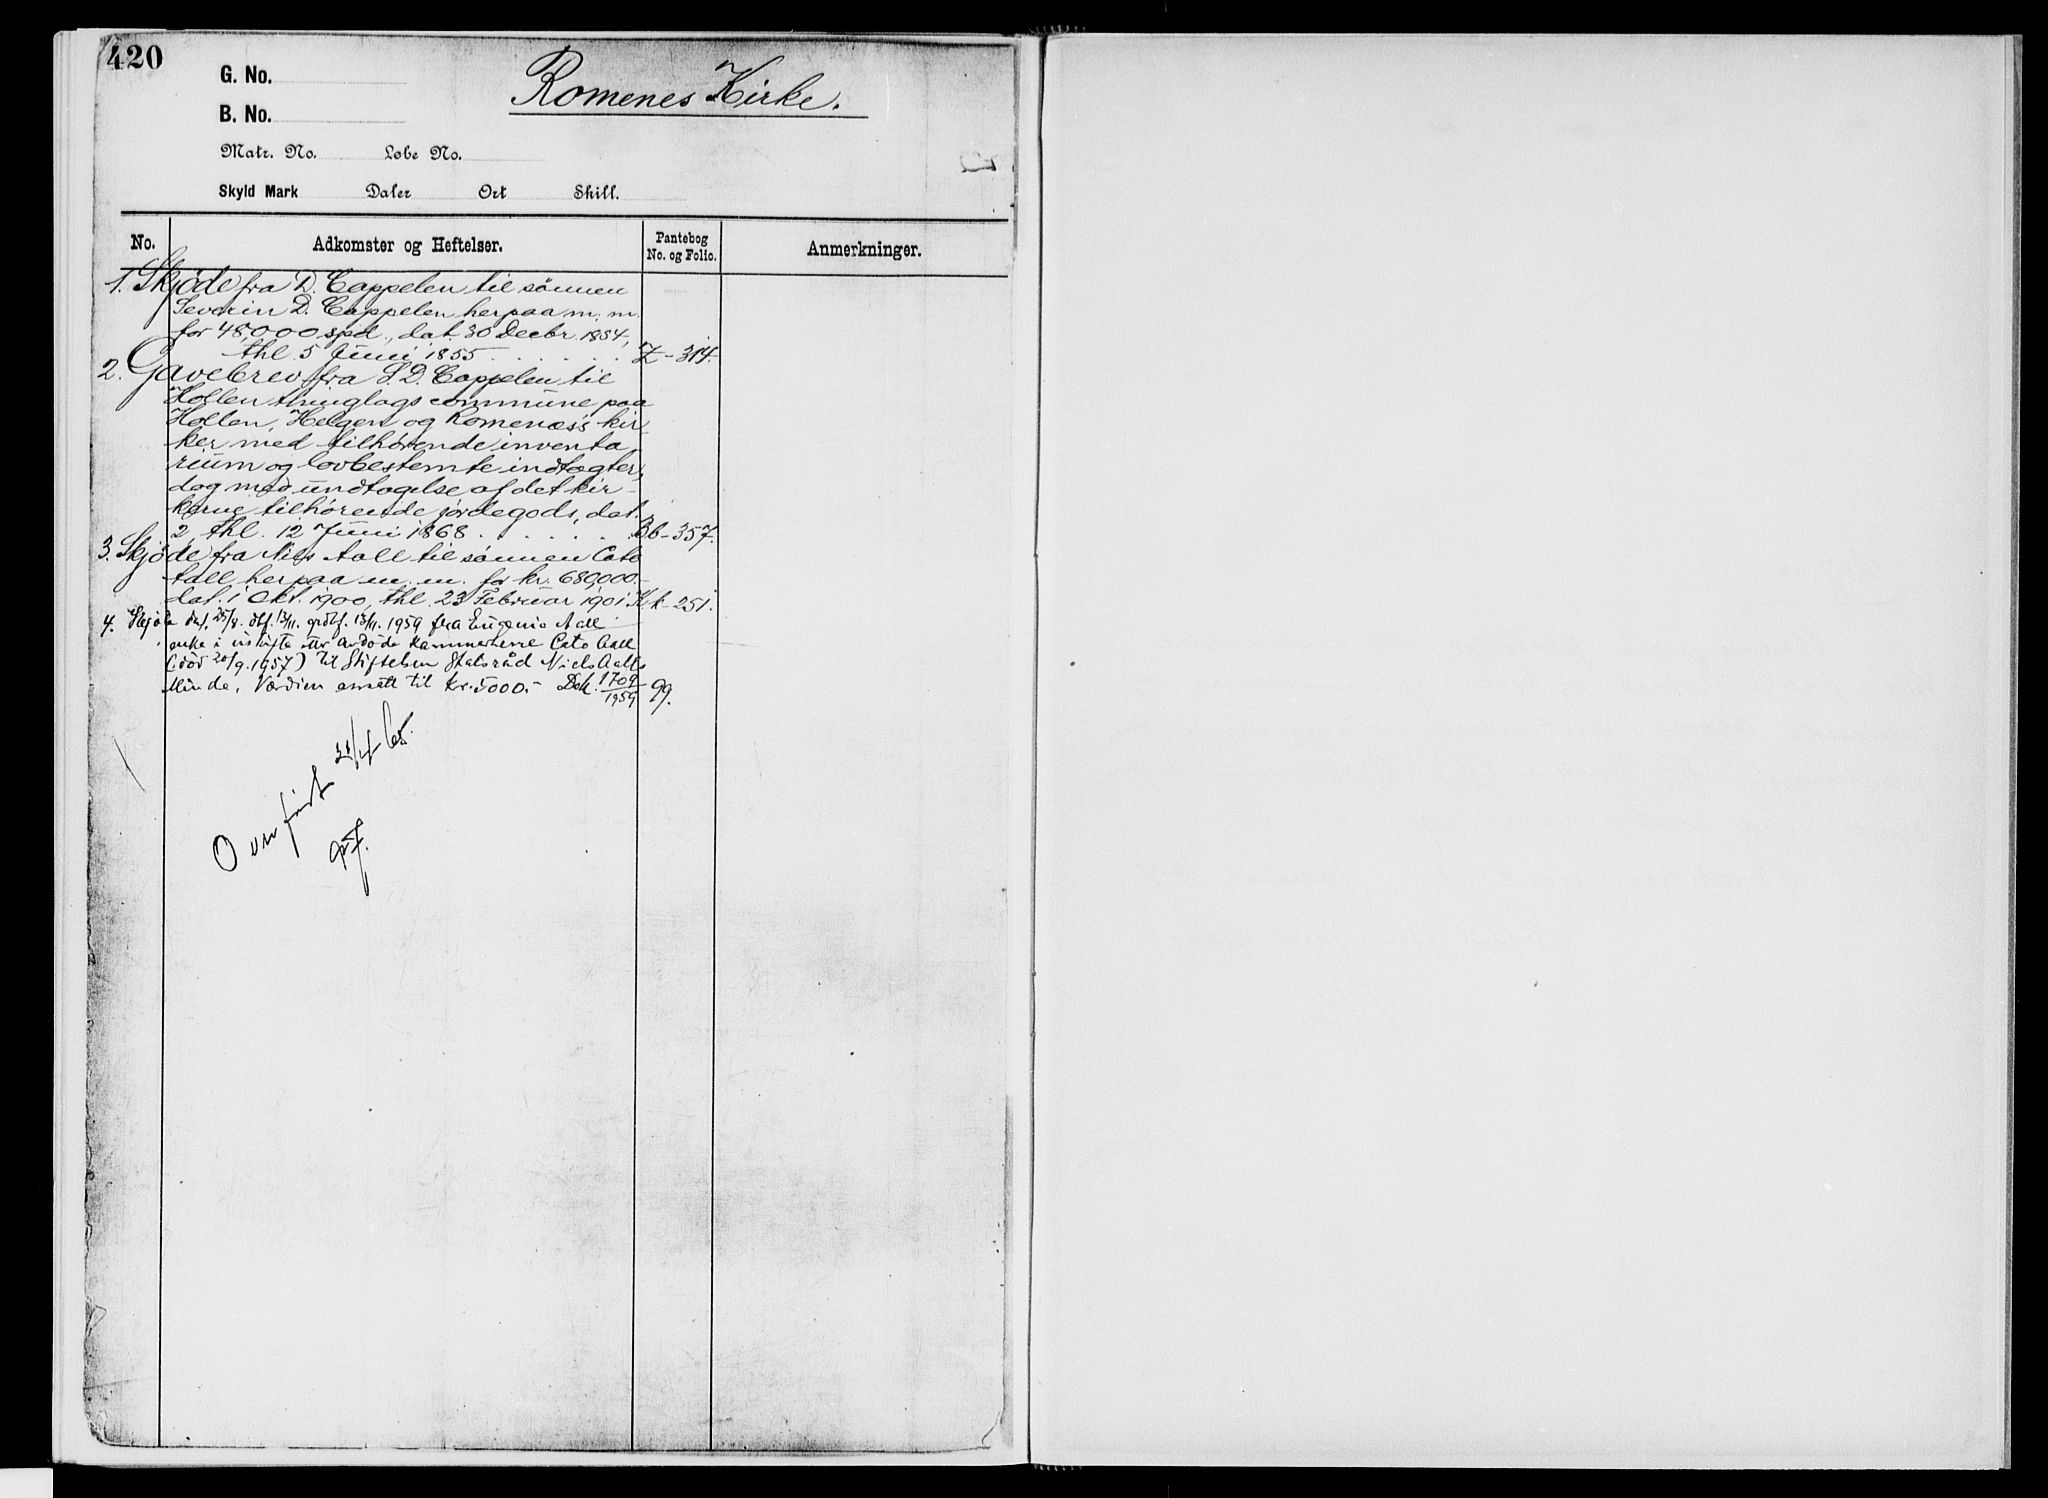 420
G. No.
B. No.
Romenes Kirke.
Matr. No. Løbe No.
Skyld Mark Daler Ort Skill.
No. Adkomster og Heftelser. Pantebog No. og Folio. Anmerkninger.
1. Skjöde fra D. Cappelen til sönnen
Severin D. Cappelen herpaa m. m.
for 48,000 spd., dat. 30 Decbr. 1854,
thl. 5 Juni 1855 . . . . . . Z - 314.
2. Gavebrev fra S. D. Cappelen til
Hollen thinglags commune paa
Hollen, Helgen og Romenæs's kir-
ker med tilhørende inventa-
rium og lovbestemte indtægter,
dog med undtagelse af det kir-
kerne tilhörende jordegods, dat.
2, thl. 12 Juni 1868 . . . . . . Bb - 357.
3. Skjöde fra Nils Aall til sönnen Cato
Aall herpaa m. m. for kr. 680,000.-
dat. 1 Okt. 1900, thl. 23 Februar 1901 Kk - 251.
4. Skjöte dat. 25/8. 13/11. 13/11. 1959 fra Eugenie Aall
enke i uskifte etter avdöde kammerherre Cato Aall
(död 20/9.1957) til Stiftelsen Statsråd Niels Aalls
Minde. Verdien ansatt til kr. 5000.- Dok. 1709/1959 99.
Overfört 65.